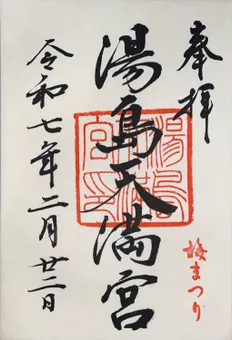 奉拝
梅まつり
湯島天満宮
令和七年二月廿二日